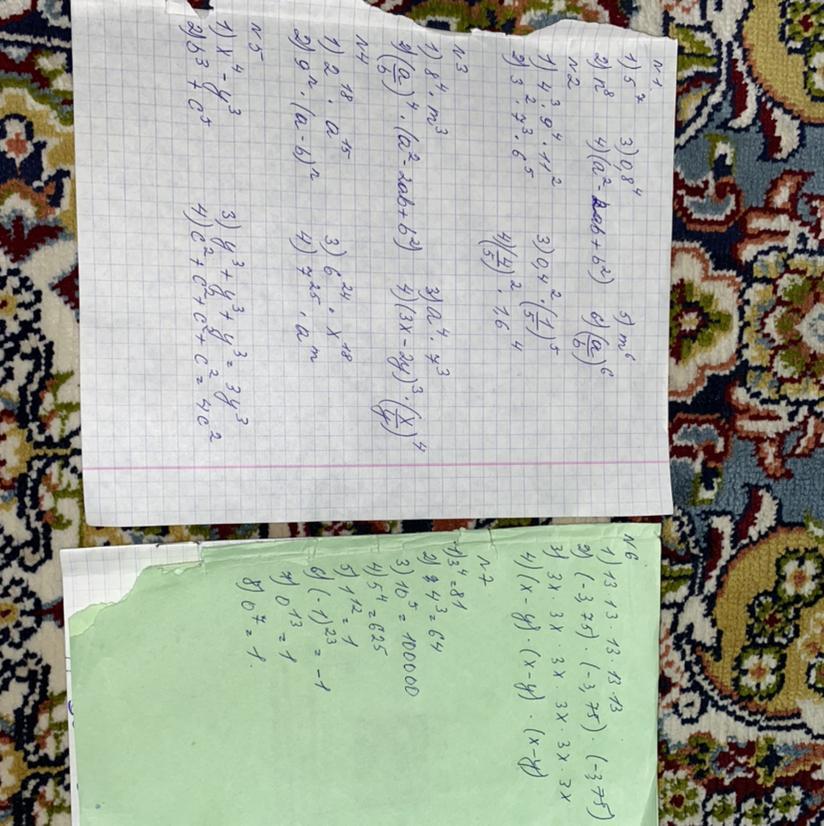 N1.
1) 5⁷ 3) 0,8⁴ 5) m⁶
2) n⁸ 4) (a² - 2ab + b²) 6) (a/b)⁶
N2
1) 4³ · 9⁴ · 11² 3) 0,4² · (1/5)⁵
2) 3² · 7³ · 6⁵ 4) (4/5)² · 16⁴
N3
1) 8⁴ · m³ 3) a⁴ · 7³
2) (a/b)⁴ · (a² - 2ab + b²) 4) (3x - 2y)³ · (x/y)⁴
N4
1) 2¹⁸ · a¹⁵ 3) 6²⁴ · x¹⁸
2) 9ⁿ · (a - b)ⁿ 4) 7²⁵ · aᵐ
N5
1) x⁴ - y³ 3) y³ + y³ + y³ = 3y³
2) b³ + c⁵ 4) c² + c² + c² + c² = 4c²
N6
1) 13 · 13 · 13 · 13 · 13
2) (-3,75) · (-3,75) · (-3,75)
3) 3x · 3x · 3x · 3x · 3x · 3x
4) (x - y) · (x - y) · (x - y)
N7
1) 3⁴ = 81
2) 4³ = 64
3) 10⁵ = 100000
4) 5⁴ = 625
5) 1¹² = 1
6) (-1)²³ = -1
7) 0¹³ = 1
8) 0⁷ = 1.